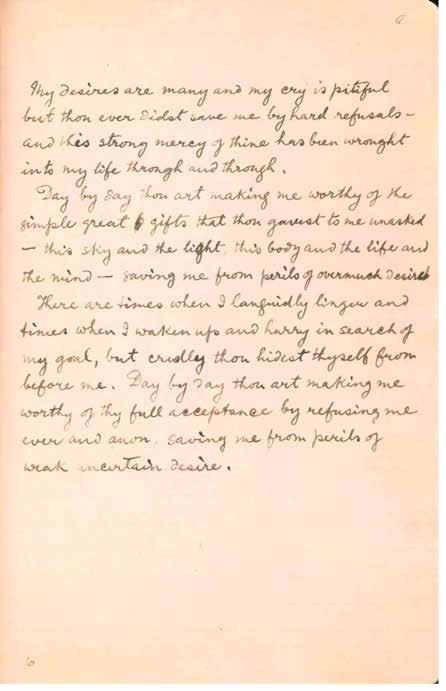 a
My desires are many and my cry is pitiful
but thou ever didst save me by hard refusals –
and this strong mercy of thine has been wrought
into my life through and through.
Day by day thou art making me worthy of the
simple great gifts that thou gavest to me unasked
– this sky and the light, this body and the life and
the mind – saving me from perils of overmuch desire
There are times when I languidly linger and
times when I waken up and hurry in search of
my goal, but cruelly thou hidest thyself from
before me. Day by day thou art making me
worthy of thy full acceptance by refusing me
ever and anon, saving me from perils of
weak uncertain desire.
6